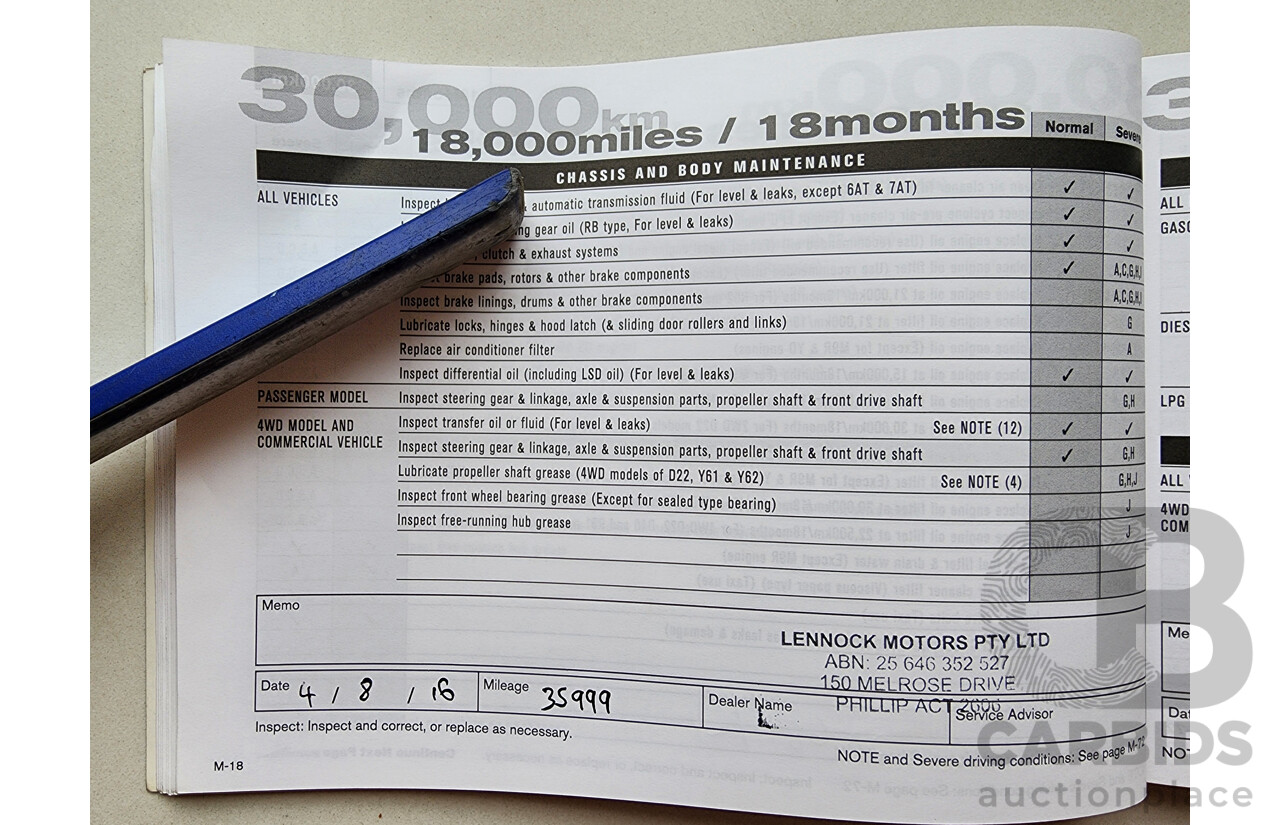 30,000km
18,000miles / 18months
Normal Severe
CHASSIS AND BODY MAINTENANCE
ALL VEHICLES
Inspect & automatic transmission fluid (For level & leaks, except 6AT & 7AT) ✓ ✓
gear oil (RB type, For level & leaks) ✓ ✓
, clutch & exhaust systems ✓ ✓
brake pads, rotors & other brake components ✓ A,C,G,H,I
Inspect brake linings, drums & other brake components A,C,G,H,I
Lubricate locks, hinges & hood latch (& sliding door rollers and links) G
Replace air conditioner filter A
Inspect differential oil (including LSD oil) (For level & leaks) ✓ ✓
PASSENGER MODEL Inspect steering gear & linkage, axle & suspension parts, propeller shaft & front drive shaft G,H
4WD MODEL AND
COMMERCIAL VEHICLE
Inspect transfer oil or fluid (For level & leaks) See NOTE (12) ✓ ✓
Inspect steering gear & linkage, axle & suspension parts, propeller shaft & front drive shaft ✓ G,H
Lubricate propeller shaft grease (4WD models of D22, Y61 & Y62) See NOTE (4) G,H,J
Inspect front wheel bearing grease (Except for sealed type bearing) J
Inspect free-running hub grease J
Memo
LENNOCK MOTORS PTY LTD
ABN: 25 646 352 527
150 MELROSE DRIVE
PHILLIP ACT 2606
Date 4 / 8 / 16 Mileage 35999 Dealer Name Service Advisor
Inspect: Inspect and correct, or replace as necessary.
NOTE and Severe driving conditions: See page M-72
M-18
3
ALL
GASO
DIES
LPG
ALL
4WD
COM
Me
Dat
NO
CARBIDS
auctionplace